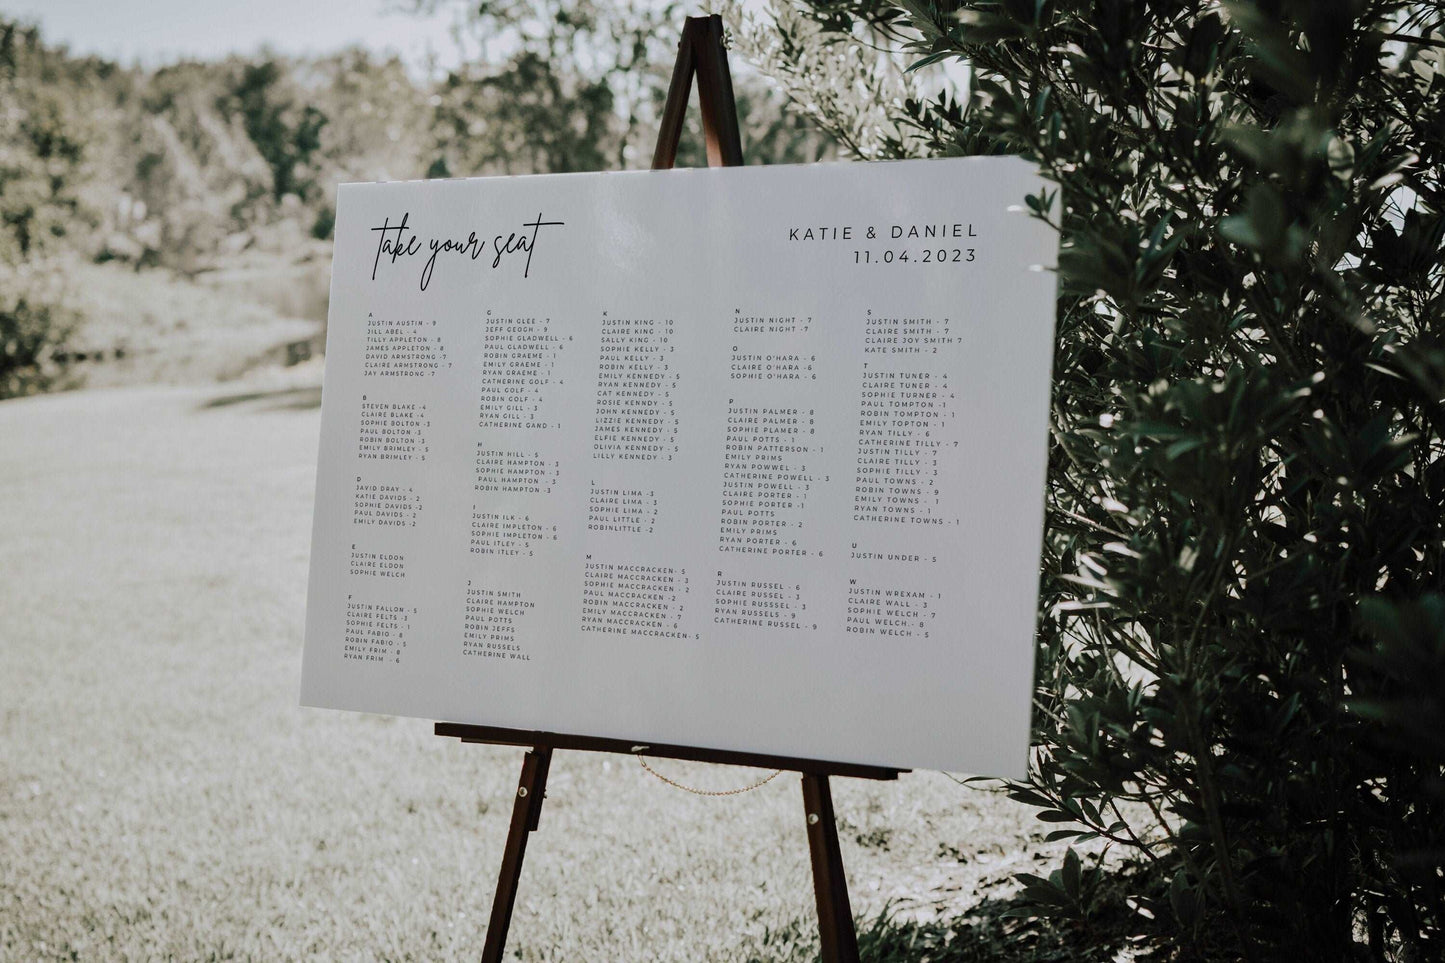 take your seat
KATIE & DANIEL
11.04.2023
A
JUSTIN AUSTIN - 9
JILL ABEL - 4
TILLY APPLETON - 8
JAMES APPLETON - 8
DAVID ARMSTRONG - 7
CLAIRE ARMSTRONG - 7
JAY ARMSTRONG -7
B
STEVEN BLAKE -4
CLAIRE BLAKE -4
SOPHIE BOLTON -3
PAUL BOLTON -3
ROBIN BOLTON -3
EMILY BRIMLEY - 5
RYAN BRIMLEY - 5
D
JAVID DRAY - 4
KATIE DAVIDS - 2
SOPHIE DAVIDS -2
PAUL DAVIDS - 2
EMILY DAVIDS -2
E
JUSTIN ELDON
CLAIRE ELDON
SOPHIE WELCH
F
JUSTIN FALLON - 5
CLAIRE FELTS -3
SOPHIE FELTS - 1
PAUL FABIO - 8
ROBIN FABIO - 5
EMILY FRIM - 8
RYAN FRIM - 6
G
JUSTIN GLEE - 7
JEFF GEOGH - 9
SOPHIE GLADWELL - 6
PAUL GLADWELL - 6
ROBIN GRAEME - 1
EMILY GRAEME - 1
RYAN GRAEME - 1
CATHERINE GOLF - 4
PAUL GOLF - 4
ROBIN GOLF - 4
EMILY GILL - 3
RYAN GILL - 3
CATHERINE GAND - 1
H
JUSTIN HILL - 5
CLAIRE HAMPTON - 3
SOPHIE HAMPTON - 3
PAUL HAMPTON - 3
ROBIN HAMPTON -3
I
JUSTIN ILK - 6
CLAIRE IMPLETON - 6
SOPHIE IMPLETON - 6
PAUL ITLEY - 5
ROBIN ITLEY - 5
J
JUSTIN SMITH
CLAIRE HAMPTON
SOPHIE WELCH
PAUL POTTS
ROBIN JEFFS
EMILY PRIMS
RYAN RUSSELS
CATHERINE WALL
K
JUSTIN KING - 10
CLAIRE KING - 10
SALLY KING - 10
SOPHIE KELLY - 3
PAUL KELLY - 3
ROBIN KELLY - 3
EMILY KENNEDY - 5
RYAN KENNEDY - 5
CAT KENNEDY - 5
ROSIE KENNDY - 5
JOHN KENNEDY - 5
LIZZIE KENNEDY - 5
JAMES KENNEDY - 5
ELFIE KENNEDY - 5
OLIVIA KENNEDY - 5
LILLY KENNEDY - 3
L
JUSTIN LIMA -3
CLAIRE LIMA - 3
SOPHIE LIMA - 2
PAUL LITTLE - 2
ROBINLITTLE -2
M
JUSTIN MACCRACKEN- 5
CLAIRE MACCRACKEN - 3
SOPHIE MACCRACKEN - 2
PAUL MACCRACKEN -2
ROBIN MACCRACKEN - 2
EMILY MACCRACKEN - 7
RYAN MACCRACKEN - 6
CATHERINE MACCRACKEN- 5
N
JUSTIN NIGHT - 7
CLAIRE NIGHT -7
O
JUSTIN O'HARA - 6
CLAIRE O'HARA -6
SOPHIE O'HARA - 6
P
JUSTIN PALMER - 8
CLAIRE PALMER - 8
SOPHIE PLAMER - 8
PAUL POTTS - 1
ROBIN PATTERSON - 1
EMILY PRIMS
RYAN POWWEL - 3
CATHERINE POWELL - 3
JUSTIN POWELL - 3
CLAIRE PORTER - 1
SOPHIE PORTER -1
PAUL POTTS
ROBIN PORTER - 2
EMILY PRIMS
RYAN PORTER - 6
CATHERINE PORTER - 6
R
JUSTIN RUSSEL - 6
CLAIRE RUSSEL - 3
SOPHIE RUSSSEL - 3
RYAN RUSSELS - 9
CATHERINE RUSSEL - 9
S
JUSTIN SMITH - 7
CLAIRE SMITH - 7
CLAIRE JOY SMITH 7
KATE SMITH - 2
T
JUSTIN TUNER - 4
CLAIRE TUNER - 4
SOPHIE TURNER - 4
PAUL TOMPTON -1
ROBIN TOMPTON - 1
EMILY TOPTON - 1
RYAN TILLY - 6
CATHERINE TILLY - 7
JUSTIN TILLY - 7
CLAIRE TILLY - 3
SOPHIE TILLY - 3
PAUL TOWNS - 2
ROBIN TOWNS - 9
EMILY TOWNS - 1
RYAN TOWNS - 1
CATHERINE TOWNS - 1
U
JUSTIN UNDER - 5
W
JUSTIN WREXAM - 1
CLAIRE WALL - 3
SOPHIE WELCH - 7
PAUL WELCH.- 8
ROBIN WELCH - 5